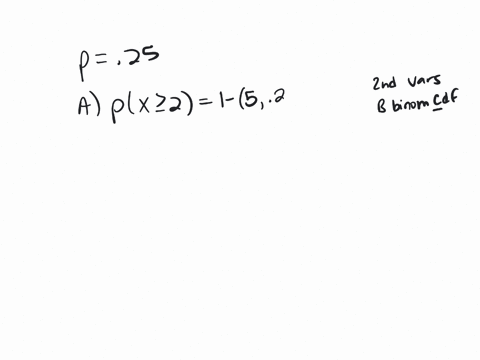 p = .25
A) p(x ≥ 2) = 1 - (5, .2
2nd vars
B binom Cdf